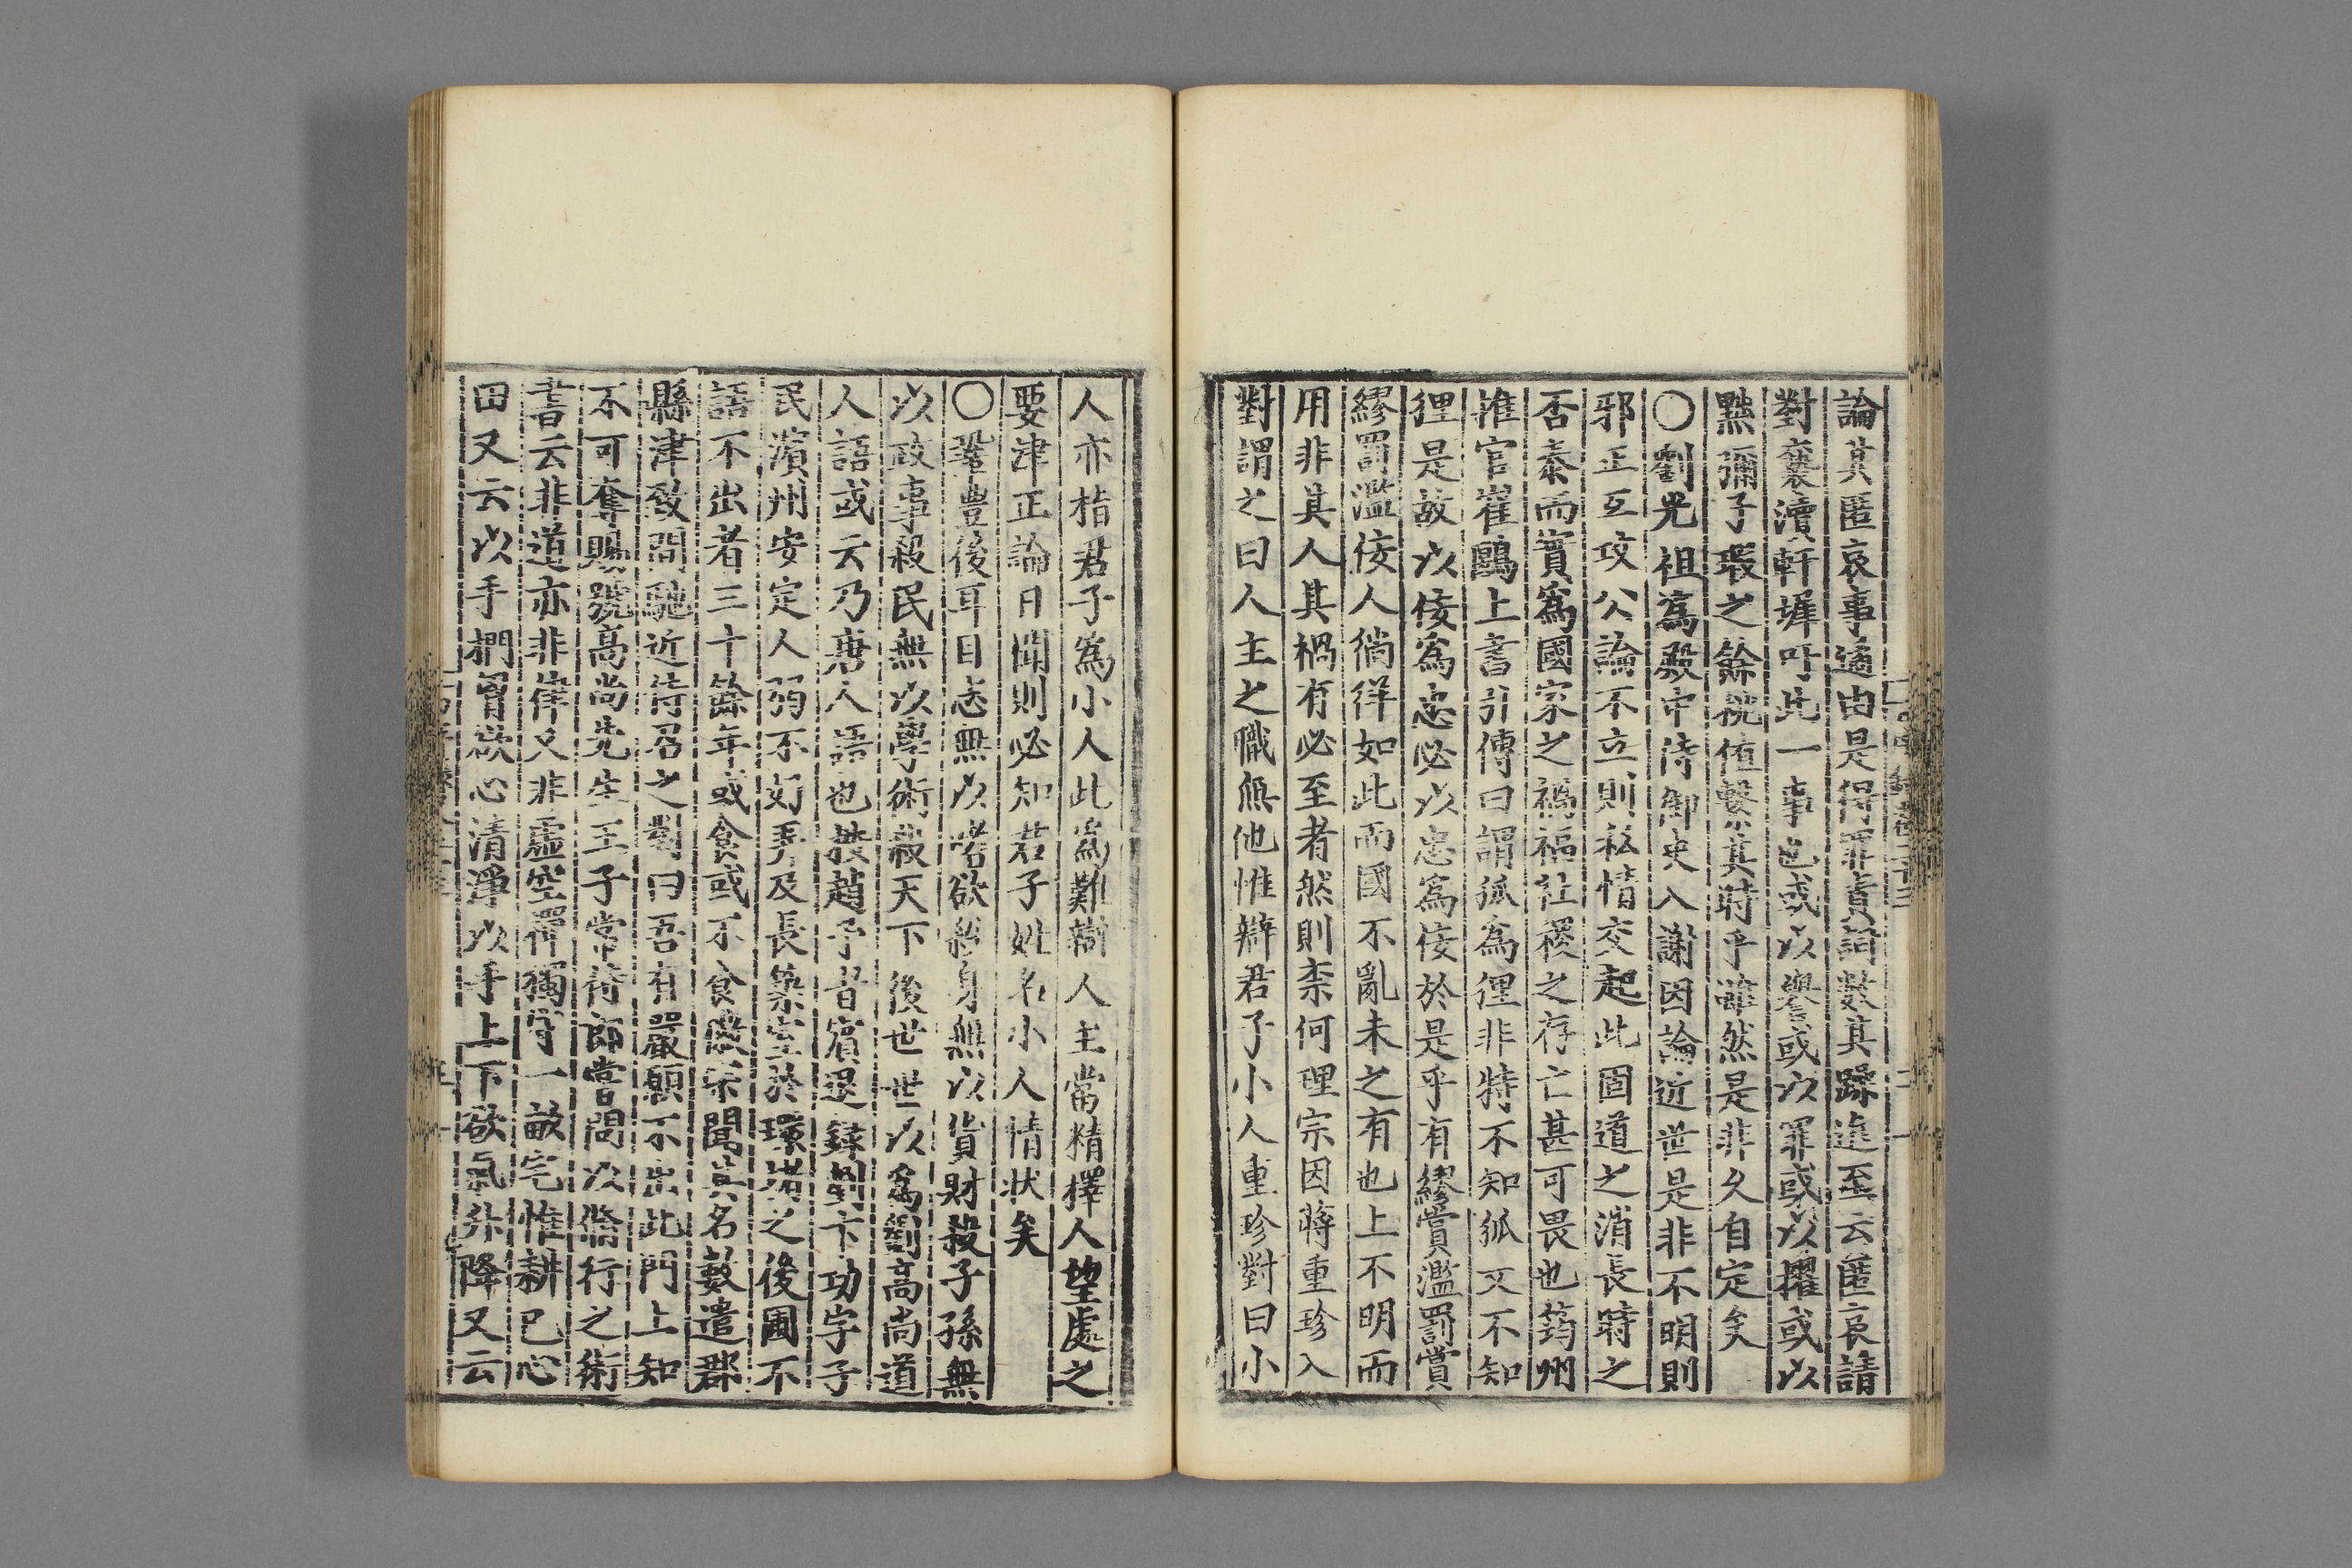 論其匿哀事適由是得罪責詞數其躁進至云匿哀請
對褻瀆軒墀吁此一事也或以譽或以罪或以擢或以
黜彌子瑕之餘桃値繫其時乎雖然是非久自定矣
〇劉光祖爲殿中侍御史入謝因論近世是非不明則
邪正互攻公論不立則私情交起此固道之消長時之
否泰而實爲國家之禍福社稷之存亡甚可畏也筠州
推官崔鷗上書引傳曰謂狐爲狸非特不知狐又不知
狸是故以佞爲忠必以忠爲佞於是乎有繆賞濫罰賞
繆罰濫佞人徜徉如此而國不亂未之有也上不明而
用非其人其禍有必至者然則柰何理宗因蔣重珍入
對謂之曰人主之職無他惟辯君子小人重珍對曰小
人亦指君子爲小人此爲難辯人主當精擇人望處之
要津正論日聞則必知君子姓名小人情状矣
〇鞏豊後耳目志無以嗜欲殺身無以貨財殺子孫無
以政事殺民無以學術殺天下後世世以爲劉高尚道
人語或云乃唐人語也按趙予昔賓退録劉卞功字子
民濱州安定人弱不好弄及長築室於環堵之後圃不
語不出者三十餘年或食或不食徽宗聞其名數遣郡
縣津致問馳近侍召之對曰吾有嚴願不出此門上知
不可奪賜號高尚先生王子常侍郎嘗問以脩行之術
書云非道亦非律又非虛空禪獨守一畝宅惟耕己心
田又云以手捫胷欲心清淨以手上下欲氣升降又云